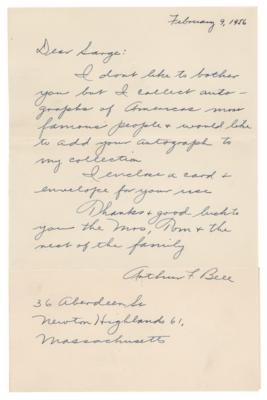 February 9, 1956
Dear Sarge:
I dont like to bother
you but I collect auto-
graphs of Americas most
famous people & would like
to add your autograph to
my collection
I enclose a card &
envelope for your use
Thanks & good luck to
you the Mrs, Tom & the
rest of the family
Arthur F. Bell
36 Aberdeen St
Newton Highlands 61,
Massachusetts